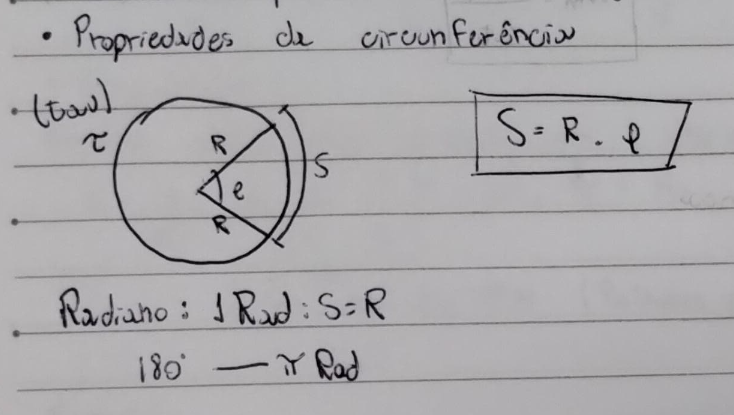 • Propriedades da circunferência
(tau)
τ
R
S
e
R
S = R . φ
Radiano: 1 Rad: S=R
180° — π Rad